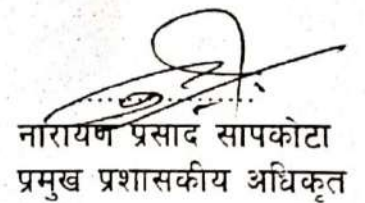 नारायण प्रसाद सापकोटा
प्रमुख प्रशासकीय अधिकृत